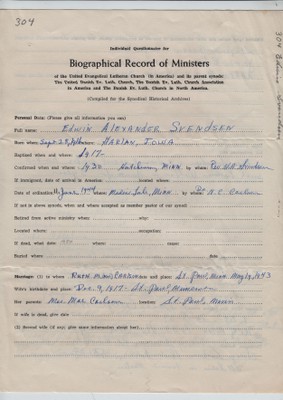 304
Individual Questionnaire for
Biographical Record of Ministers
of the United Evangelical Lutheran Church (in America) and its parent synods:
The United Danish Ev. Luth. Church, The Danish Ev. Luth. Church Association
in America and The Danish Ev. Luth. Church in North America.
(Compiled for the Synodical Historical Archives)
Personal Data: (Please give all information you can)
Full name: EDWIN ALEXANDER SVENDSEN
Born when: Sept. 28, where: HARLAN, IOWA
Baptized when and where: 1917-
Confirmed when and where: 1930 Hutchinson, MINN by: Rev.
If immigrated, date of arrival in America located where:
Date of ordination: June, 1944 where: Minn by: Rev N.C. Carlsen
If not in above synods, when and where accepted as member pastor of our synod:
Retired from active ministry when: why:
Located where: occupation:
If dead, what date: where: cause:
Buried where: date
Marriage: (1) to whom: and place: St. Paul, Minn. May 1943
Wife's birthdate and place: Dec. 9, 1917- St. Paul, Minnesota-
Her parents: Mrs. Mae Carlson location: St. Paul, Minn
If wife is dead, give date
(2) Second wife (if any, give same information about her).